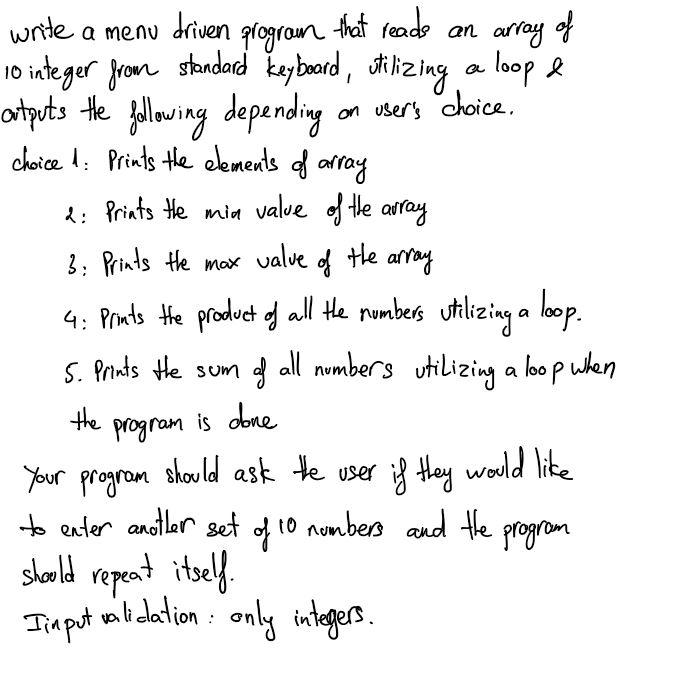 write a menu driven program that reads an array of
10 integer from standard keyboard, utilizing a loop &
outputs the following depending on user's choice.
choice 1: Prints the elements of array
2: Prints the min value of the array
3: Prints the max value of the array
4: Prints the product of all the numbers utilizing a loop.
5. Prints the sum of all numbers utilizing a loop when
the program is done
Your program should ask the user if they would like
to enter another set of 10 numbers and the program
should repeat itself.
Iinput validation: only integers.